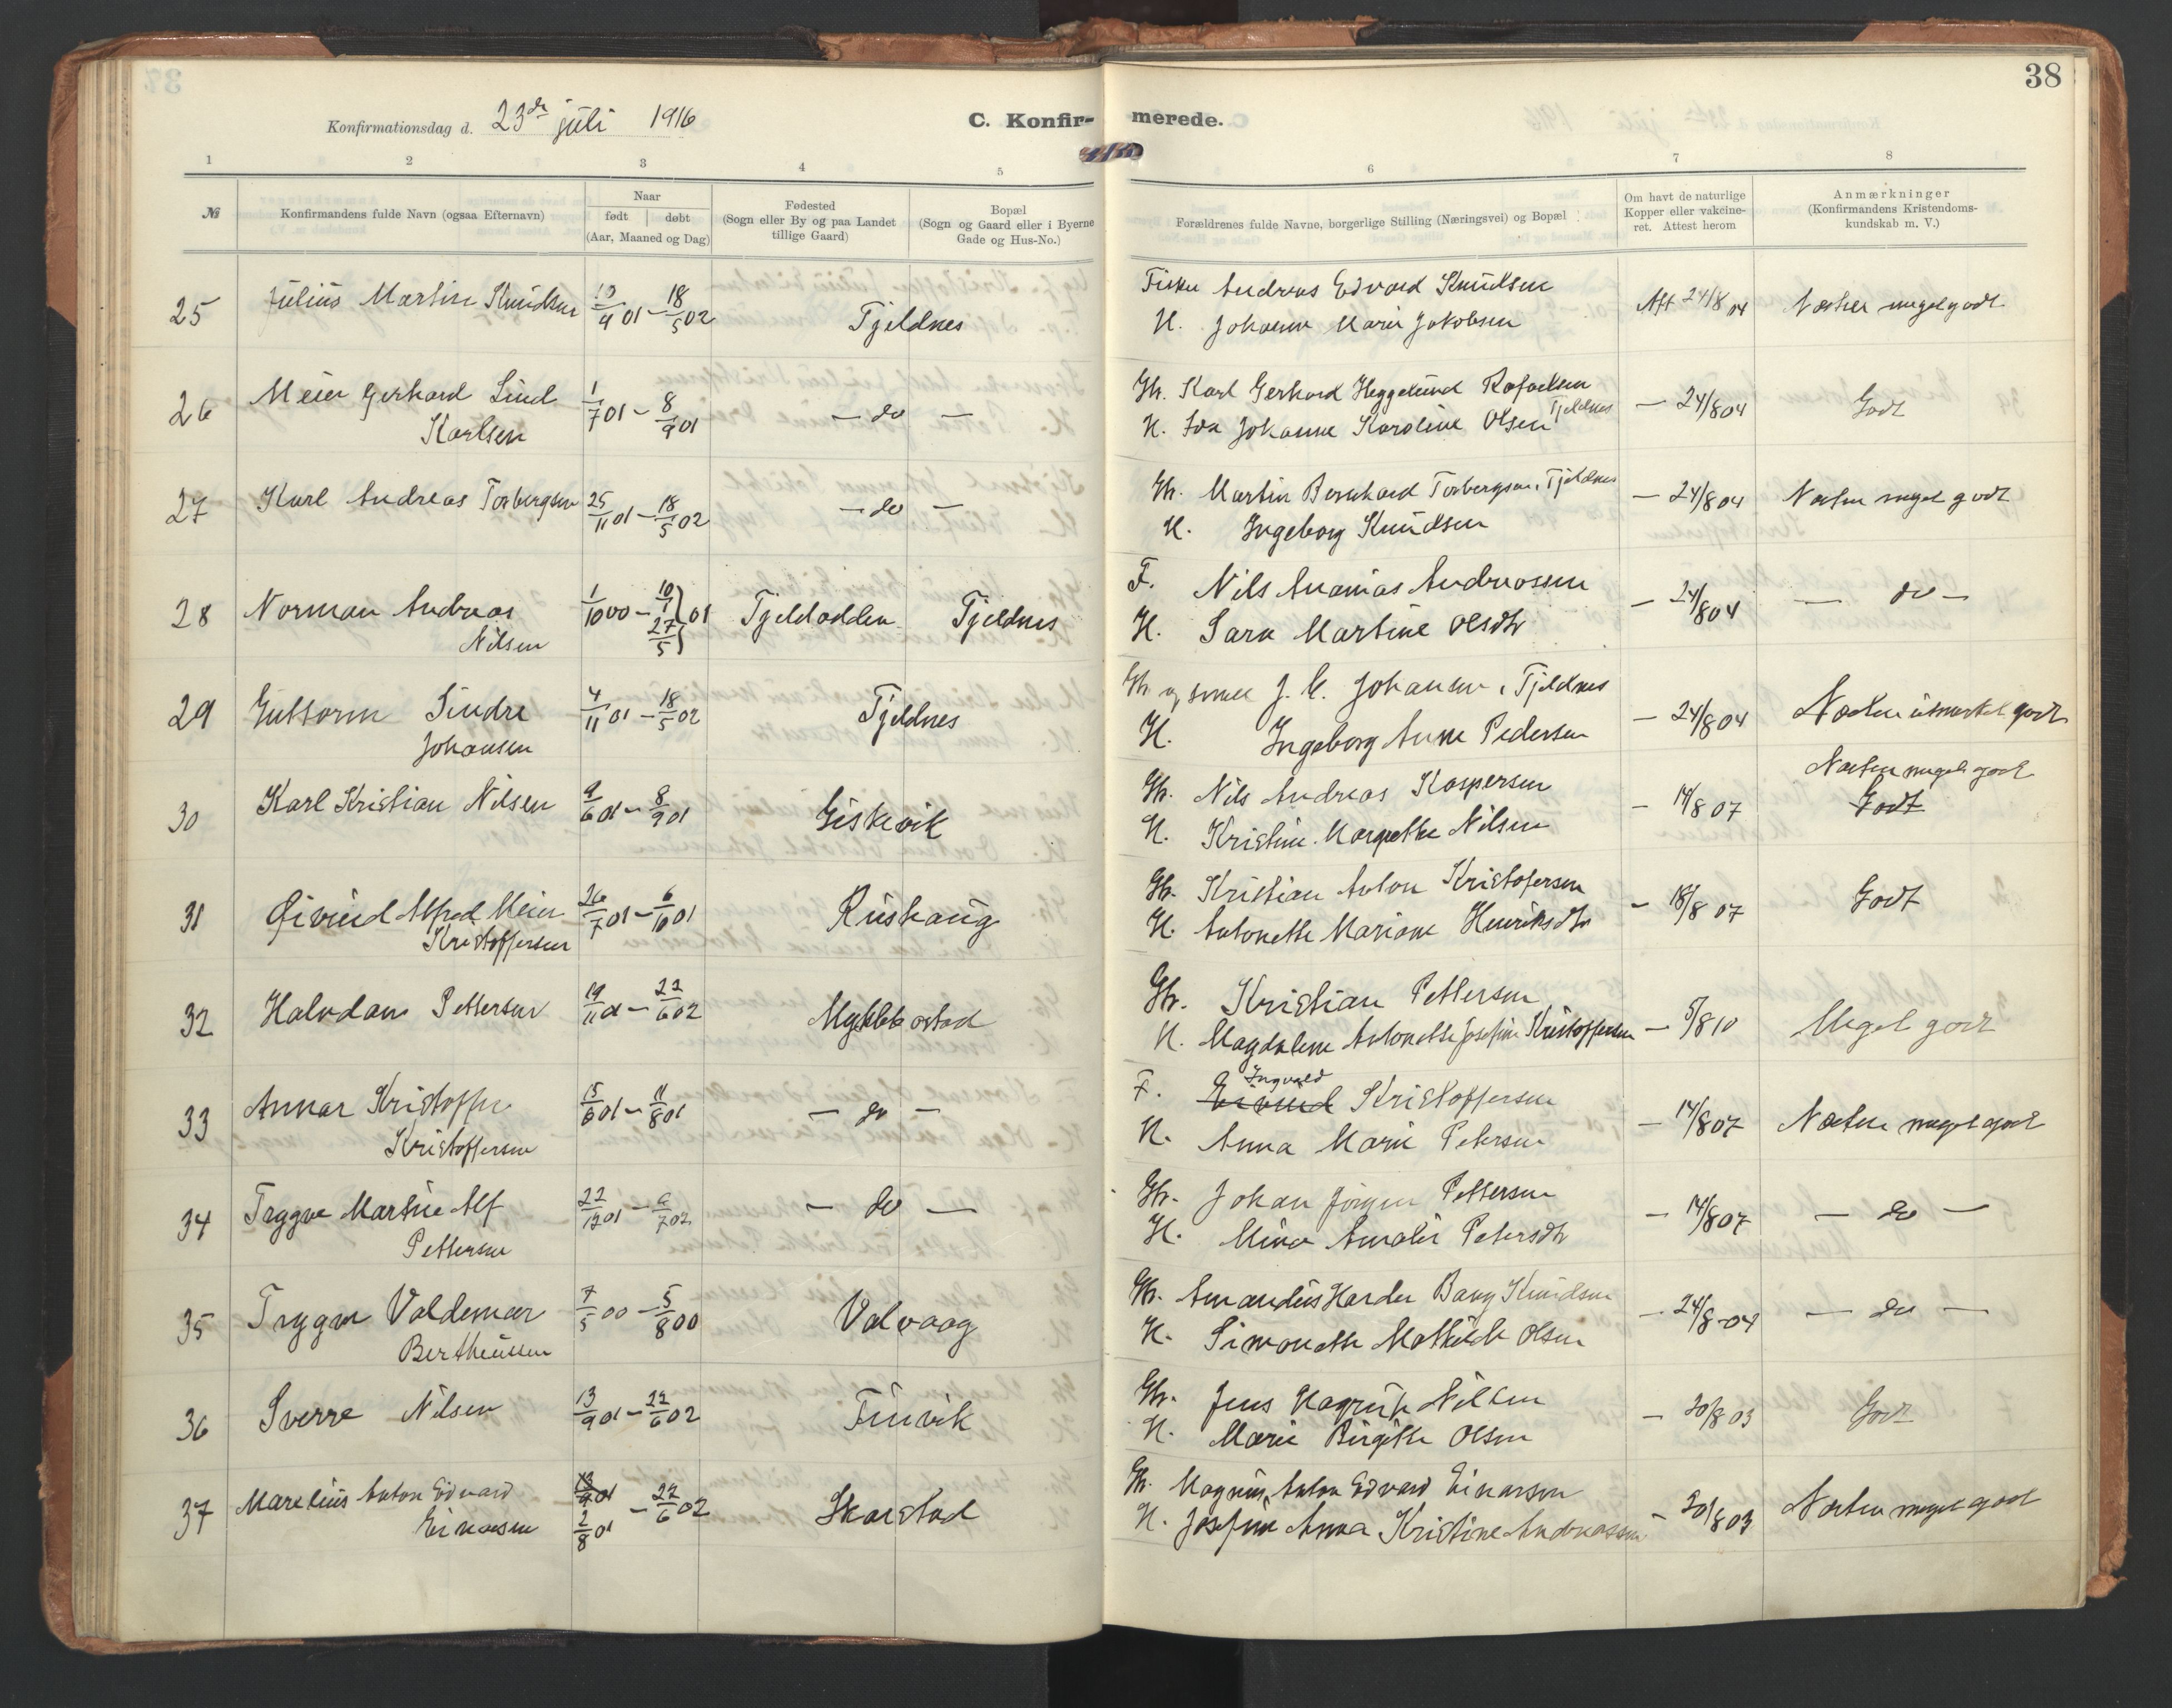 38
Konfirmationsdag d. 23de juli 1916
C. Konfir- merede.
1 2 3 4 5 6 7 8
№
Konfirmandens fulde Navn (ogsaa Efternavn)
Naar
født | døbt
(Aar, Maaned og Dag)
Fødested
(Sogn eller By og paa Landet
tillige Gaard)
Bopæl
(Sogn og Gaard eller i Byerne
Gade og Hus-No.)
Forældrenes fulde Navne, borgerlige Stilling (Næringsvei) og Bopæl
Om havt de naturlige
Kopper eller vakcine-
ret. Attest herom
Anmærkninger
(Konfirmandens Kristendoms-
kundskab m. V.)
25 Julius Martin Knudsen 10/9 01 – 18/5 02 Tjeldnes Fisker Andreas Edvard Knudsen Att 24/8 04 Næsten meget godt
H. Johanna Marie Jakobsen
26 Meier Gerhard Lind 1/7 01 – 8/9 01 – do – Gb. Karl Gerhard Heggelund Rafaelsen – 24/8 04 Godt
Karlsen H. Ida Johanne Karoline Olsen Tjeldnes
27 Karl Andreas Torbergsen 25/11 01 – 18/5 02 – do – Gb. Martin Bernhard Torbergsen, Tjeldnes – 24/8 04 Næsten meget godt
H. Ingeborg Knudsen
28 Norman Andreas 1/10 00 – 10/1 27/5 } 01 Tjeldodden Tjeldnes F. Nils Ananias Andreassen – 24/8 04 – do –
Nilsen H. Sara Martine Olsdtr
29 Guttorm Sindre 4/11 01 – 18/5 02 Tjeldnes Gb og smed J. C. Johansen, Tjeldnes – 24/8 04 Næsten utmerket godt
Johansen H. Ingeborg Anne Pedersen
30 Karl Kristian Nilsen 9/6 01 – 8/9 01 Giskevik Gb. Nils Andreas Kaspersen – 14/8 07 Næsten meget godt
H. Kristine Margrethe Nilsen Godt
31 Øivind Alfred Meier 26/7 01 – 6/10 01 Rushaug Gb. Kristian Anton Kristofersen – 18/8 07 Godt
Kristoffersen H. Antonette Mariane Henriksdtr
32 Halvdan Pettersen 19/11 01 – 22/6 02 Myklebostad Gb. Kristian Pettersen – 5/8 10 Meget godt
H. Magdalene Antonette Josefine Kristoffersen
33 Annar Kristoffer 15/6 01 – 11/8 01 – do – F. Eivind Ingvald Kristoffersen – 14/8 07 Næsten meget godt
Kristoffersen H. Anna Marie Petersen
34 Trygve Martin Alf 22/12 01 – 6/7 02 – do – Gb. Johan Jörgen Pettersen – 14/8 07 – do –
Pettersen H. Mina Amalie Petersdtr
35 Trygve Valdemar 7/5 00 – 5/8 00 Valvaag Gb. Amandus Harder Bang Knudsen – 24/8 04 – do –
Bertheussen H. Simonette Mathilde Olsen
36 Sverre Nilsen 13/9 01 – 22/6 02 Finvik Gb. Jens Hagrup Nilsen – 20/8 03 Godt
H. Marie Birgitte Olsen
37 Marelius Anton Edvard 13/9 01 2/8 01 – 22/6 02 Skarstad Gb. Magnus Anton Edvard Einarsen – 20/8 03 Næsten meget godt
Einarsen H. Josefine Anna Kristine Andreassen